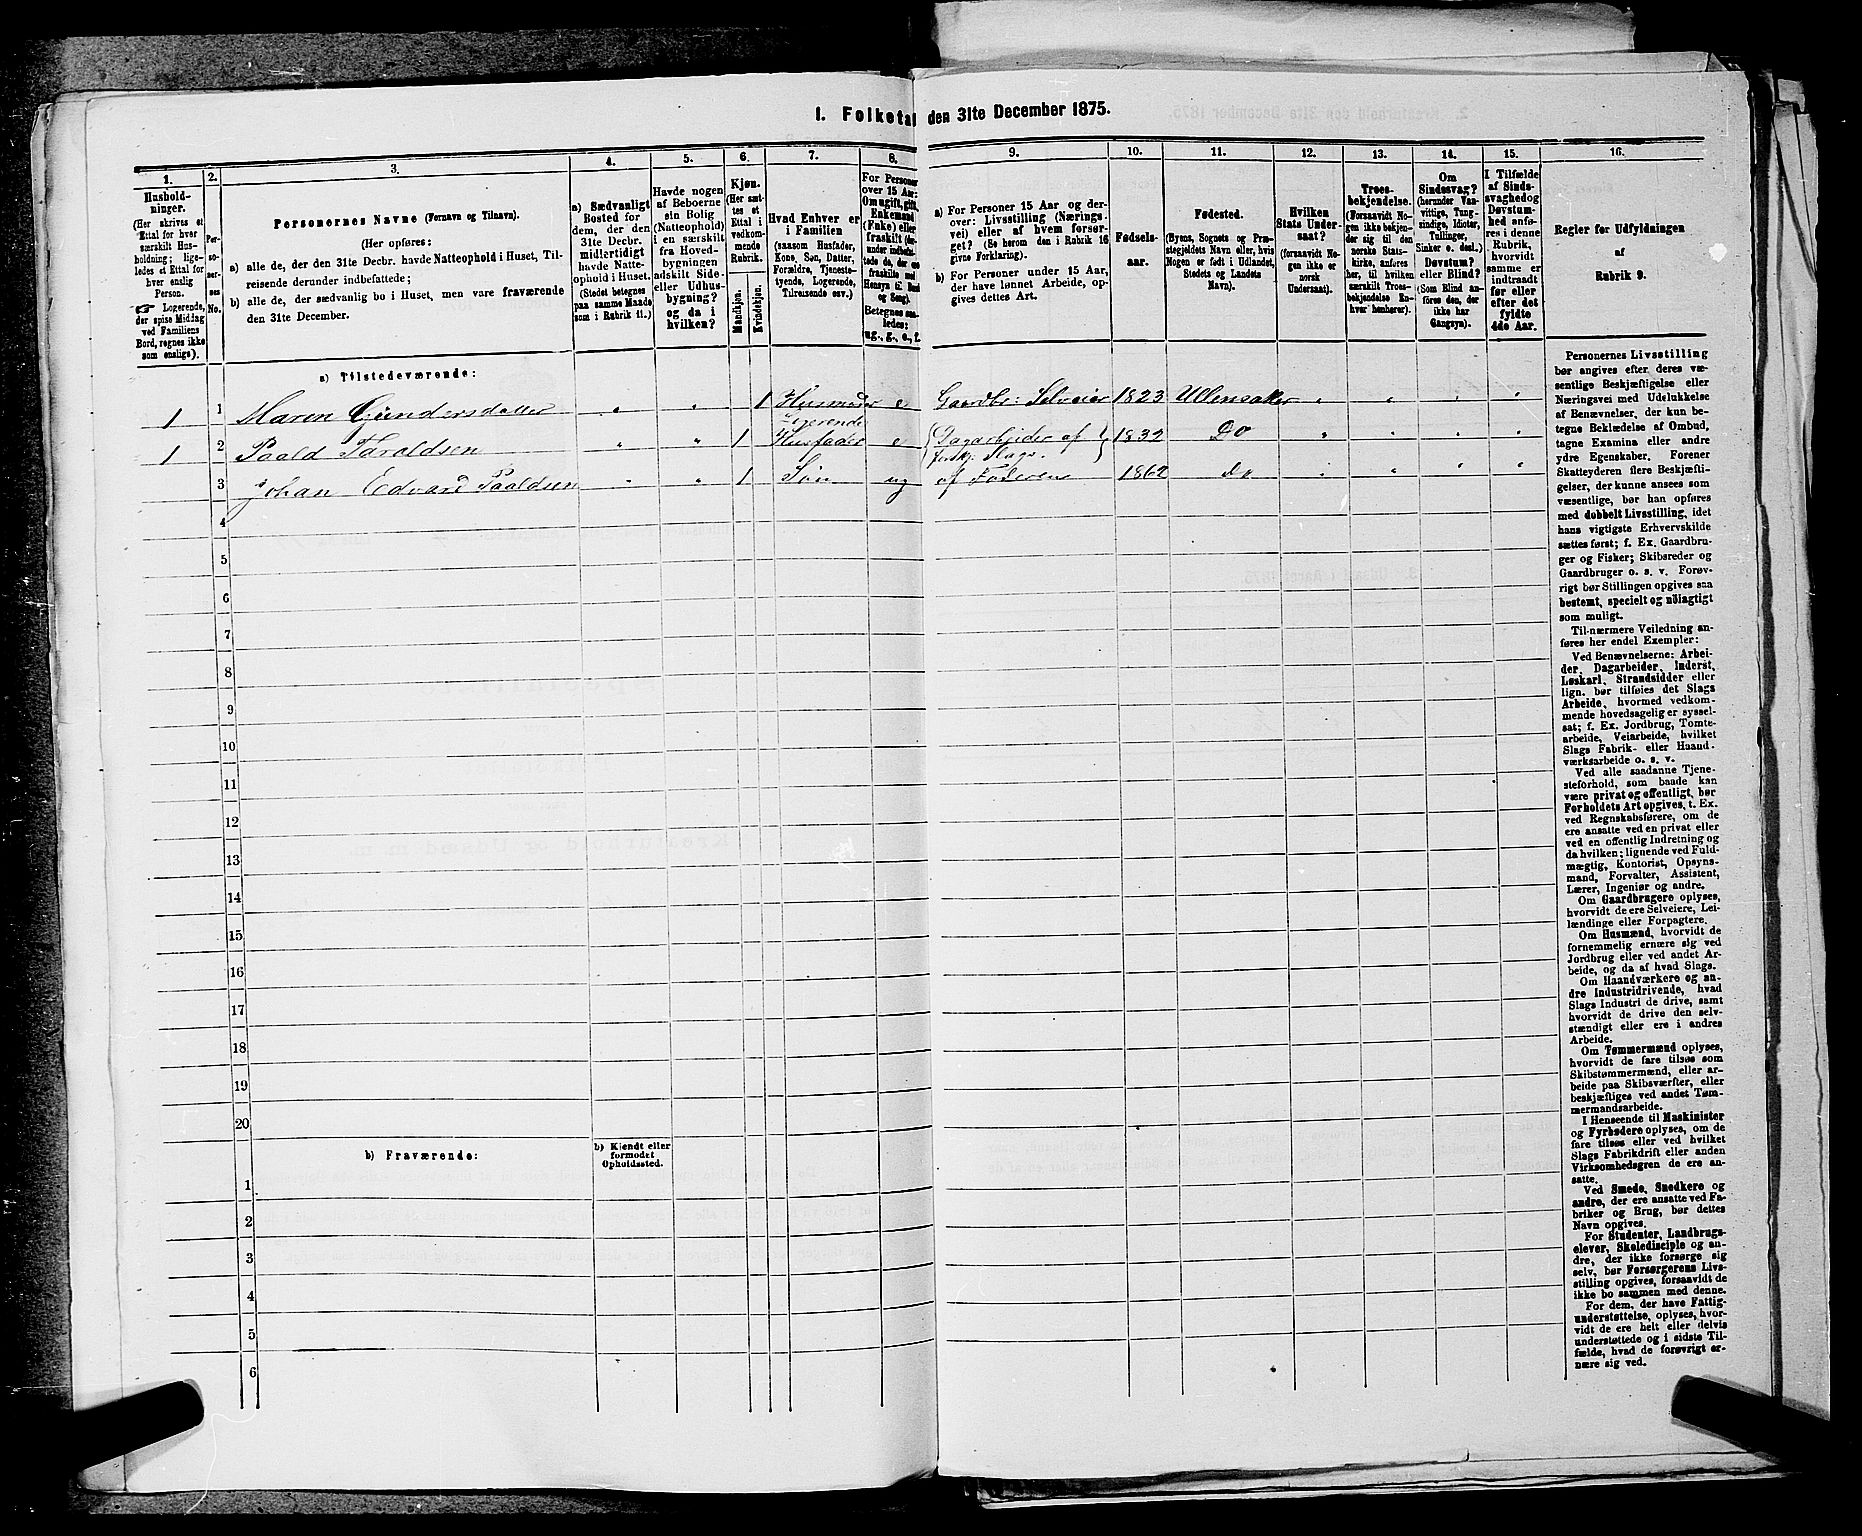 I. Folketal den 31te December 1875.
1.
Hushold-
ninger.
(Her skrives et
Ettal for hver
særskilt Hus-
holdning; lige-
ledes et Ettal for
hver enslig
Person.
☞ Logerende,
der spise Middag
ved Familiens
Bord, regnes ikke
som enslige).
2.
Per-
so-
ner-
nes
No.
3.
Personernes Navne (Fornavn og Tilnavn).
(Her opføres:
a) alle de, der den 31te Decbr. havde Natteophold i Huset, Til-
reisende derunder indbefattede;
b) alle de, der sædvanlig bo i Huset, men vare fraværende
den 31te December.
4.
a) Sædvanligt
Bosted for
dem, der den
31te Decbr.
midlertidigt
havde Natte-
ophold i Huset.
(Stedet betegnes
paa samme Maade
som i Rubrik 11.)
5.
Havde nogen
af Beboerne
sin Bolig
(Natteophold)
i en særskilt
fra Hoved-
bygningen
adskilt Side-
eller Udhus-
bygning?
og da i
hvilken?
6.
Kjøn.
(Her sæt-
tes et
Ettal i
vedkom-
mende
Rubrik.
Mandkjøn.
Kvindekjøn.
7.
Hvad Enhver er
i Familien
(saasom Husfader,
Kone, Søn, Datter,
Forældre, Tjeneste-
tyende, Logerende,
Tilreisende osv.)
8.
For Personer
over 15 Aar:
Om ugift, gift,
Enkemand
(Enke) eller
fraskilt
Betegnes saa-
ledes:
ug., g., e., f.
9.
a) For Personer 15 Aar og der-
over: Livsstilling (Nærings-
vei) eller af hvem forsør-
get? (Se herom den i Rubrik 16
givne Forklaring).
b) For Personer under 15 Aar,
der have lønnet Arbeide, op-
gives dettes Art.
10.
Fødsels-
aar.
11.
Fødested.
(Byens, Sognets og Præ-
stegjeldets Navn eller, hvis
Nogen er født i Udlandet,
Stedets og Landets
Navn).
12.
Hvilken
Stats Under-
saat?
(forsaavidt No-
gen ikke er
norsk
Undersaat).
13.
Troes-
bekjendelse.
(Forsaavidt No-
gen ikke bekjen-
der sig til den
norske Stats-
kirke, anføres
her, til hvilken
særskilt Troes-
bekjendelse En-
hver henhører).
14.
Om
Sindssvag?
(herunder Van-
vittige, Tung-
sindige, Idioter,
Tullinger,
Sinker o. desl.)
Døvstum?
eller Blind?
(Som Blind an-
føres den, der
ikke har
Gangsyn).
15.
I Tilfælde
af Sinds-
svaghed og
Døvstum-
hed anfø-
res i denne
Rubrik,
hvorvidt
samme er
indtraadt
før eller
efter det
fyldte
4de Aar.
16.
Regler for Udfyldningen
af
Rubrik 9.
a) Tilstedeværende:
1 1 Maren Gundersdatter " " 1 Husmoder e Gaardbr: Selveier 1823 Ullensaker " " " "
Logerende
1 2 Paald Taraldsen " " 1 Husfader e Dagarbeider af 1832 Do " " " "
forsk: Slags.
3 Johan Edvard Paaldsen " " 1 Søn ug af Faderen 1862 do " " " "
4
5
6
7
8
9
10
11
12
13
14
15
16
17
18
19
20
b) Fraværende:
b) Kjendt eller
formodet
Opholdssted.
1
2
3
4
5
6
Personernes Livsstilling
bør angives efter deres væ-
sentlige Beskjæftigelse eller
Næringsvei med Udelukkelse
af Benævnelser, der kun be-
tegne Beklædelse af Ombud,
tagne Examina eller andre
ydre Egenskaber. Forener
Skatteyderen flere Beskjæfti-
gelser, der kunne ansees som
væsentlige, bør han opføres
med dobbelt Livsstilling, idet
hans vigtigste Erhvervskilde
sættes først; f. Ex. Gaardbru-
ger og Fisker; Skibsreder og
Gaardbruger o. s. v. Forøv-
rigt bør Stillingen opgives saa
bestemt, specielt og nøiagtigt
som muligt.
Til nærmere Veiledning an-
føres her endel Exempler:
Ved Benævnelserne: Arbei-
der, Dagarbeider, Inderst,
Løskarl, Strandsidder eller
lign. bør tilføies det Slags
Arbeide, hvormed vedkom-
mende hovedsagelig er syssel-
sat; f. Ex. Jordbrug, Tomte-
arbeide, Veiarbeide, hvilket
Slags Fabrik- eller Haand-
værksarbeide o. s. v.
Ved alle saadanne Tjene-
steforhold, som baade kan
være privat og offentligt, bør
Forholdets Art opgives, t. Ex.
ved Regnskabsførere, om de
ere ansatte ved en privat eller
ved en offentlig Indretning og
da hvilken; lignende ved Fuld-
mægtig, Kontorist, Opsyns-
mand, Forvalter, Assistent,
Lærer, Ingeniør og andre.
Om Gaardbrugere oplyses,
hvorvidt de ere Selveiere, Lei-
lændinge eller Forpagtere.
Om Husmænd, hvorvidt de
fornemmelig ernære sig ved
Jordbrug eller ved andet Ar-
beide, og da af hvad Slags.
Om Haandværkere og an-
dre Industridrivende, hvad
Slags Industri de drive, samt
hvorvidt de drive den selv-
stændigt eller ere i andres
Arbeide.
Om Tømmermænd oplyses,
hvorvidt de fare tilsøs som
Skibstømmermænd, eller ar-
beide paa Skibsværfter, eller
beskjæftiges ved andet Tøm-
mermandsarbeide.
I Henseende til Maskinister
og Fyrbødere oplyses, om de
fare tilsøs eller ved hvilket
Slags Fabrikdrift eller anden
Virksomhedsgren de ere an-
satte.
Ved Smede, Snedkere og
andre, der ere ansatte ved Fa-
briker og Brug, bør dettes
Navn opgives.
For Studenter, Landbrugs-
elever, Skoledisciple og an-
dre, der ikke forsørge sig
selv, bør Forsørgerens Livs-
stilling opgives, forsaavidt de
ikke bo sammen med denne.
For dem, der have Fattig-
understøttelse, oplyses, hvor-
vidt de ere helt eller delvis
understøttede og i sidste Til-
fælde, hvad de forøvrigt er-
nære sig ved.